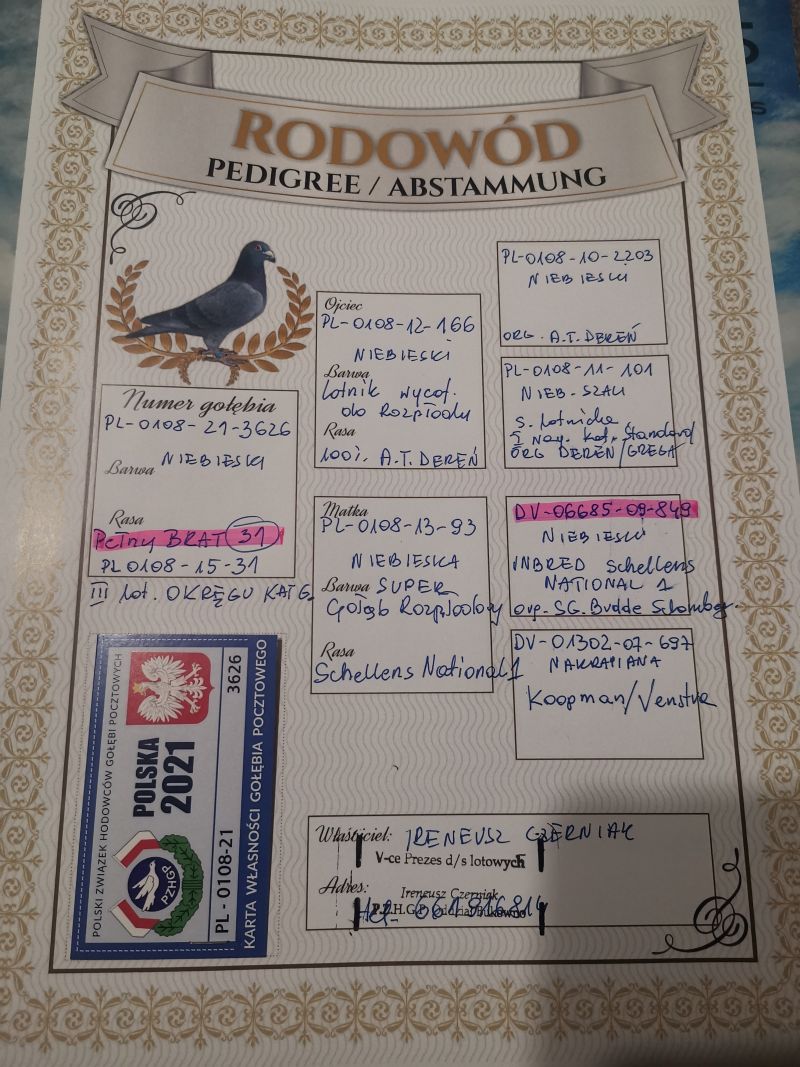 RODOWÓD
PEDIGREE / ABSTAMMUNG
Numer gołębia
PL-0108-21-3626
Barwa NIEBIESKI
Rasa
Pełny BRAT 31
PL0108-15-31
III lot. OKRĘGU KAT G.
Ojciec
PL-0108-12-166
NIEBIESKI
Barwa
Lotnik wycof.
do Rozpłodu
Rasa
100% A.T. DEREŃ
Matka
PL-0108-13-93
NIEBIESKA
Barwa SUPER
Gołąb Rozpłodowy
Rasa
Schellens National 1
PL-0108-10-2203
NIEBIESKI
ORG. A.T. DEREŃ
PL-0108-11-101
NIEB-SZALI
s. lotnicka
I Kat. Standard
ORG DEREŃ/GREGA
DV-06685-09-849
NIEBIESKI
INBRED Schellens
NATIONAL 1
org. SG. Budde
DV-01302-07-697
NAKRAPIANA
Koopman/Venstra
POLSKI ZWIĄZEK HODOWCÓW GOŁĘBI POCZTOWYCH
POLSKA
2021
3626
PZHGP
PL - 0108-21
KARTA WŁASNOŚCI GOŁĘBIA POCZTOWEGO
Właściciel: IRENEUSZ CZERNIAK
V-ce Prezes d/s lotowych
Adres:
Ireneusz Czerniak